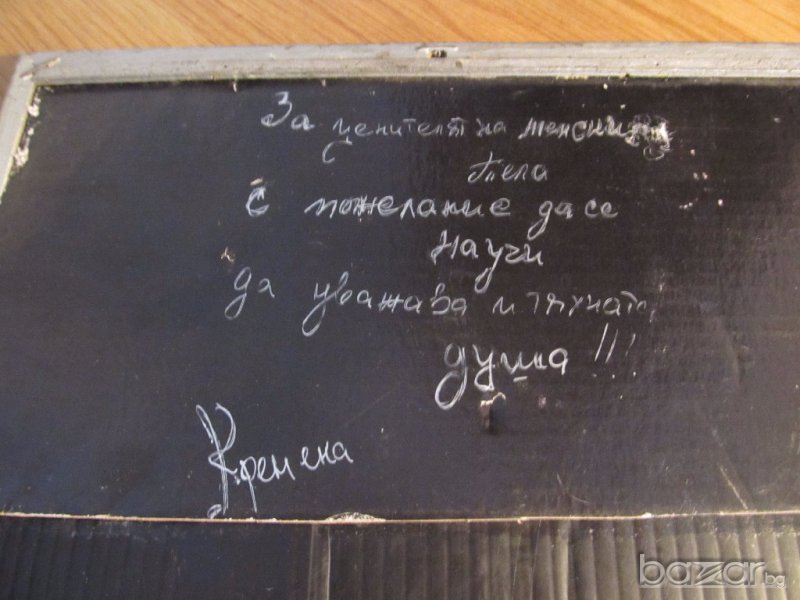 За ценителят на женски
тела
с пожелание да се
научи
да уважава и тяхната
душа!!!
Кремена
bazar.bg